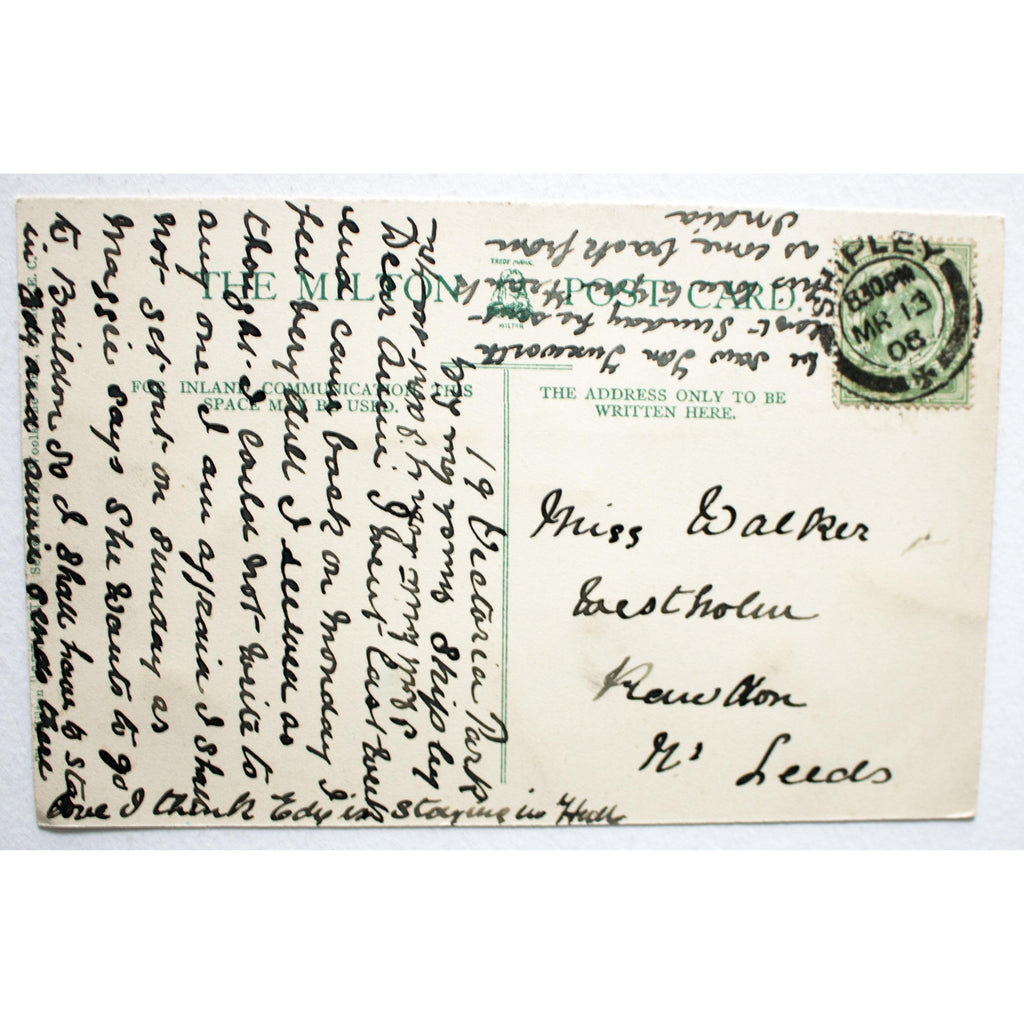 THE MILTON POST CARD.
TRADE MARK
MILTON
FOR INLAND COMMUNICATION, THIS
SPACE MAY BE USED.
THE ADDRESS ONLY TO BE
WRITTEN HERE.
SHIPLEY
8.30 PM
MR 13
06
Miss Walker
Westholm
Rawdon
Nr Leeds
19 Victoria Park
Shipley
Dear Annie I went last week
end came back on Monday I
feel very dull I seemed as
though I could not write to
any one I am affraid I shall
not set out on Sunday as
Massie says she wants to go
to Baildon so I shall have to stay
in Edy and annie sends there
love I think Edy is staying in Hull
Sunday he says
as come back from
India